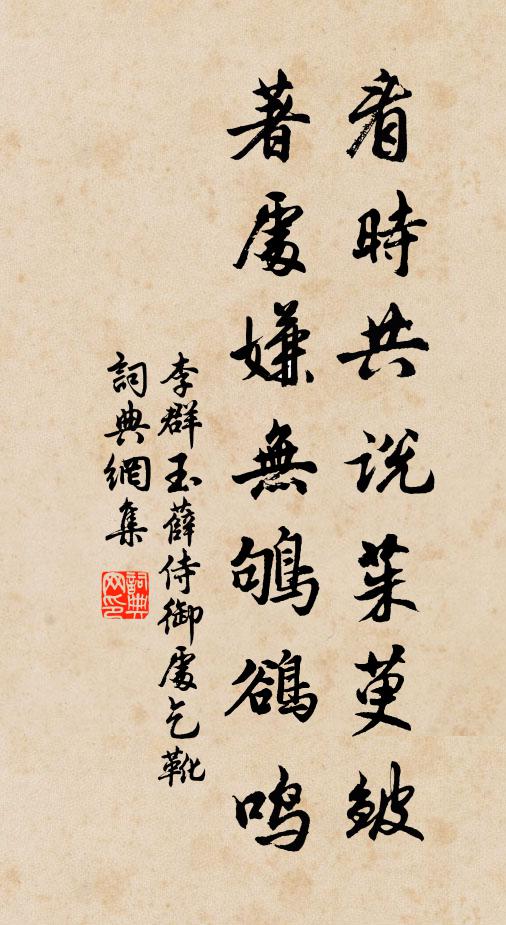 看時共說茱萸皺
著處嫌無鴝鵒鳴
李群玉薛侍御處乞靴
詞典網集
詞典网印